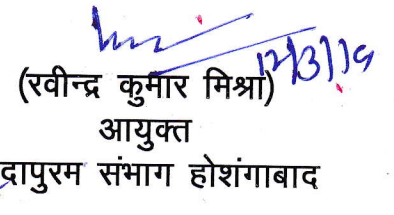 12/3/19
(रवीन्द्र कुमार मिश्रा)
आयुक्त
दापुरम संभाग होशंगाबाद